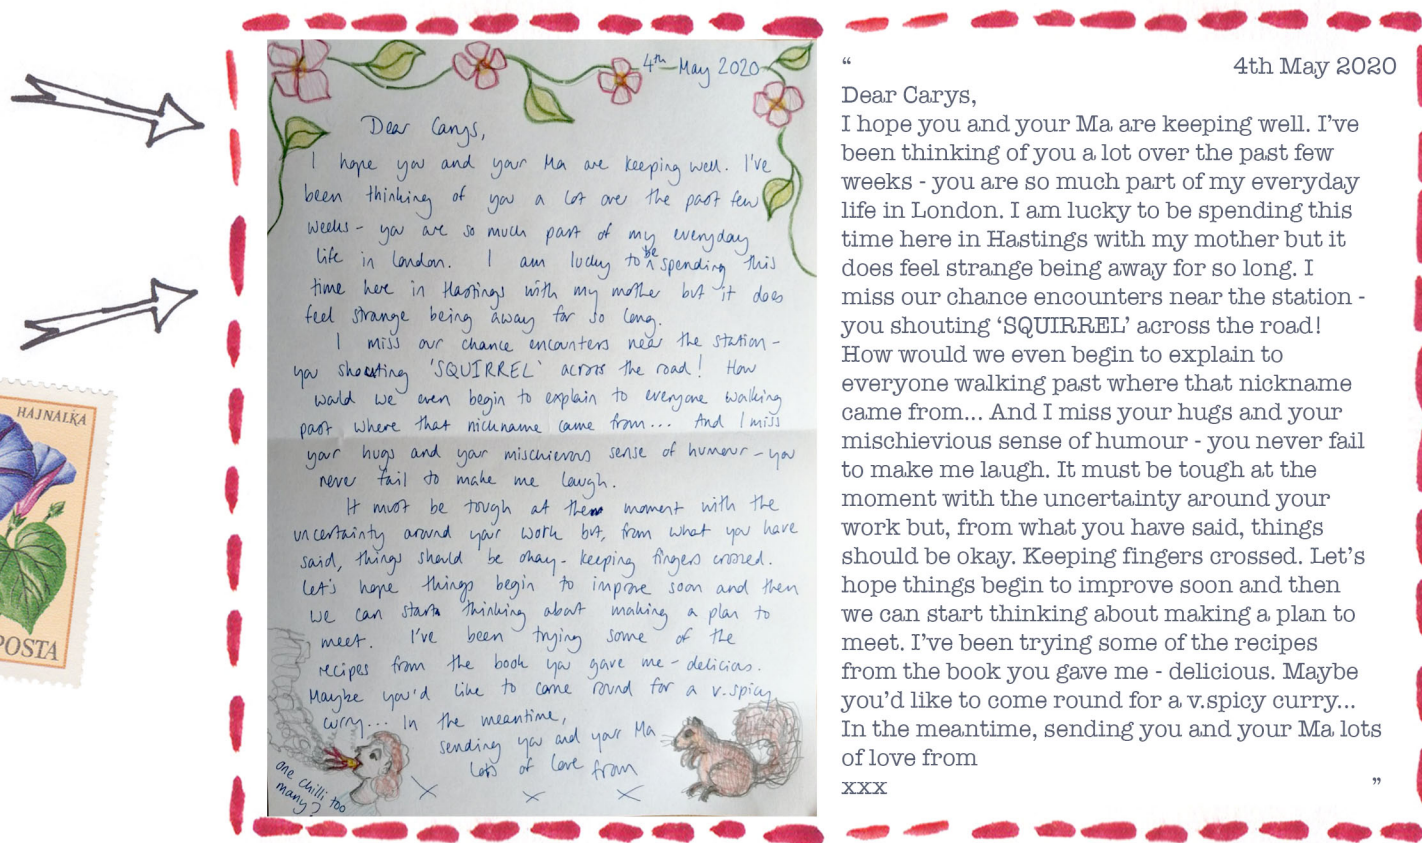 4th May 2020
Dear Carys,
I hope you and your Ma are keeping well. I've
been thinking of you a lot over the past few
weeks - you are so much part of my everyday
life in London. I am lucky to be spending this
time here in Hastings with my mother but it does
feel strange being away for so long.
I miss our chance encounters near the station -
you shouting 'SQUIRREL' across the road! How
would we even begin to explain to everyone walking
past where that nickname came from... And I miss
your hugs and your mischievous sense of humour - you
never fail to make me laugh.
It must be tough at the moment with the
uncertainty around your work but, from what you have
said, things should be okay - keeping fingers crossed.
Let's hope things begin to improve soon and then
we can start thinking about making a plan to
meet. I've been trying some of the
recipes from the book you gave me - delicious.
Maybe you'd like to come round for a v.spicy
curry... In the meantime,
sending you and your Ma
lots of love from
x x x
one chilli too
many?
“
4th May 2020
Dear Carys,
I hope you and your Ma are keeping well. I’ve
been thinking of you a lot over the past few
weeks - you are so much part of my everyday
life in London. I am lucky to be spending this
time here in Hastings with my mother but it
does feel strange being away for so long. I
miss our chance encounters near the station -
you shouting ‘SQUIRREL’ across the road!
How would we even begin to explain to
everyone walking past where that nickname
came from... And I miss your hugs and your
mischievious sense of humour - you never fail
to make me laugh. It must be tough at the
moment with the uncertainty around your
work but, from what you have said, things
should be okay. Keeping fingers crossed. Let’s
hope things begin to improve soon and then
we can start thinking about making a plan to
meet. I’ve been trying some of the recipes
from the book you gave me - delicious. Maybe
you’d like to come round for a v.spicy curry...
In the meantime, sending you and your Ma lots
of love from
xxx ”
HAJNALKA
POSTA